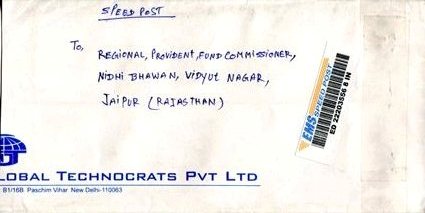 SPEED POST
To,
REGIONAL, PROVIDENT, FUND COMMISSIONER,
NIDHI BHAWAN, VIDYUT NAGAR,
JAIPUR (RAJASTHAN)
EMS SPEED POST
ED 22203556 8 IN
LOBAL TECHNOCRATS PVT LTD
B1/16B Paschim Vihar New Delhi-110063